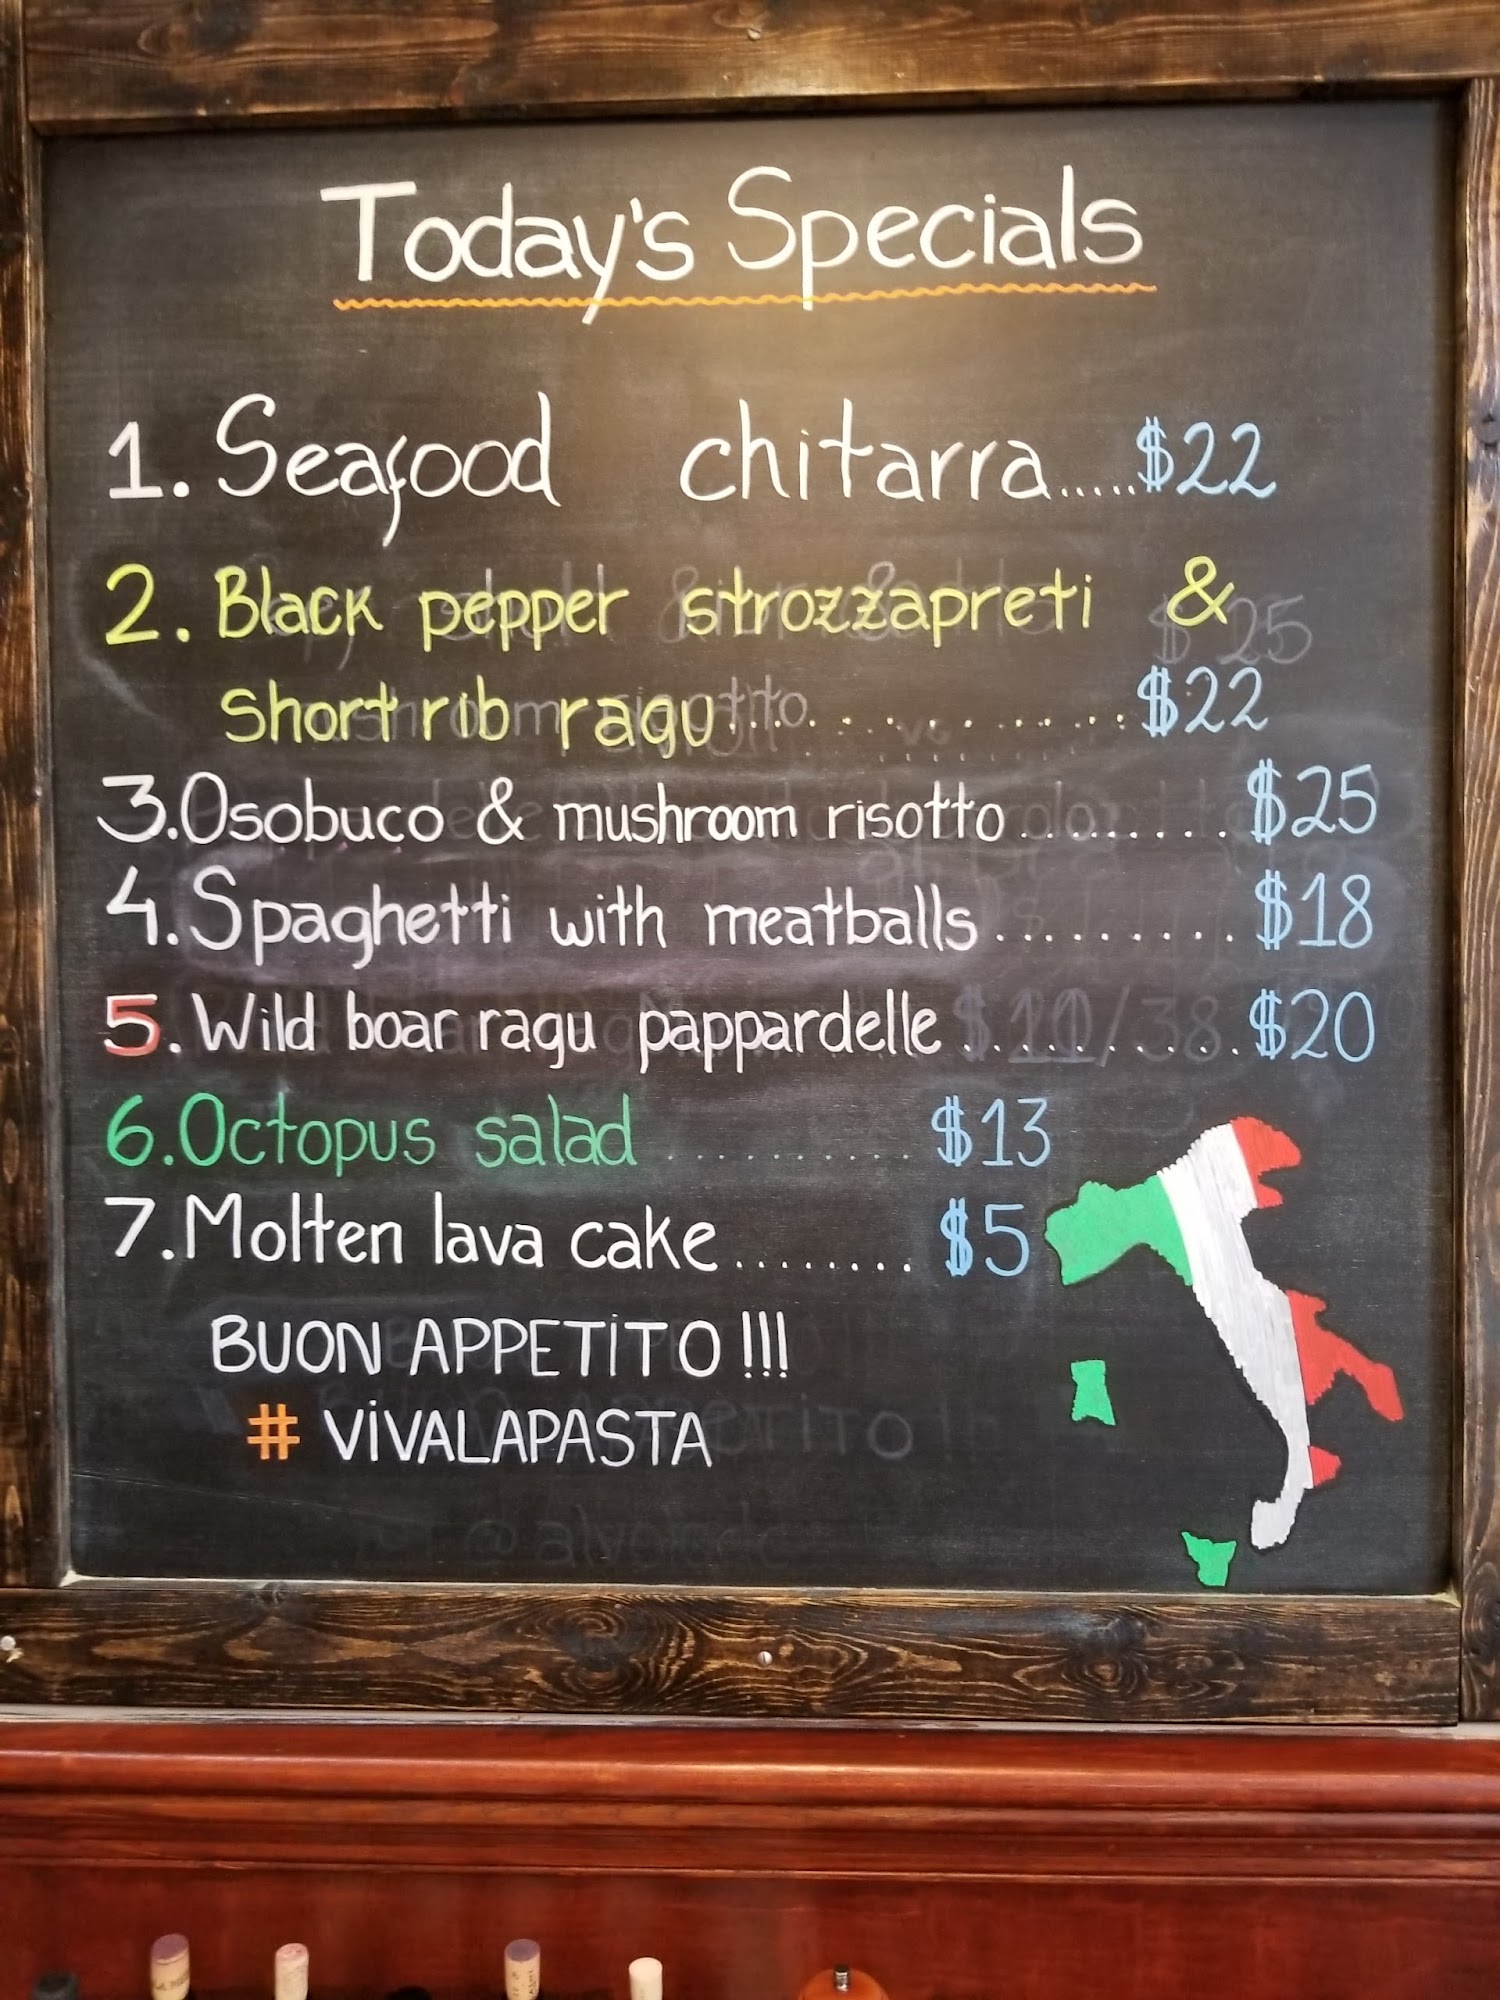 Today's Specials
1. Seafood chitarra.....$22
2. Black pepper strozzapreti &
Short rib ragu..............$22
3. Osobuco & mushroom risotto.........$25
4. Spaghetti with meatballs..........$18
5. Wild boar ragu pappardelle..........$20
6. Octopus salad ..........$13
7. Molten lava cake........$5
BUON APPETITO !!!
# VIVALAPASTA